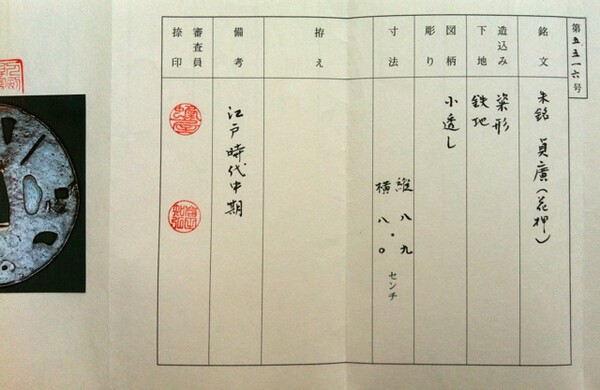 第五五一六号
銘文
朱銘 貞廣(花押)
造込み
下地
形
鉄地
図柄
彫り
小透し
寸法
縦 八・九
横 八・〇
センチ
拵え
備考
江戸時代中期
審査員
捺印